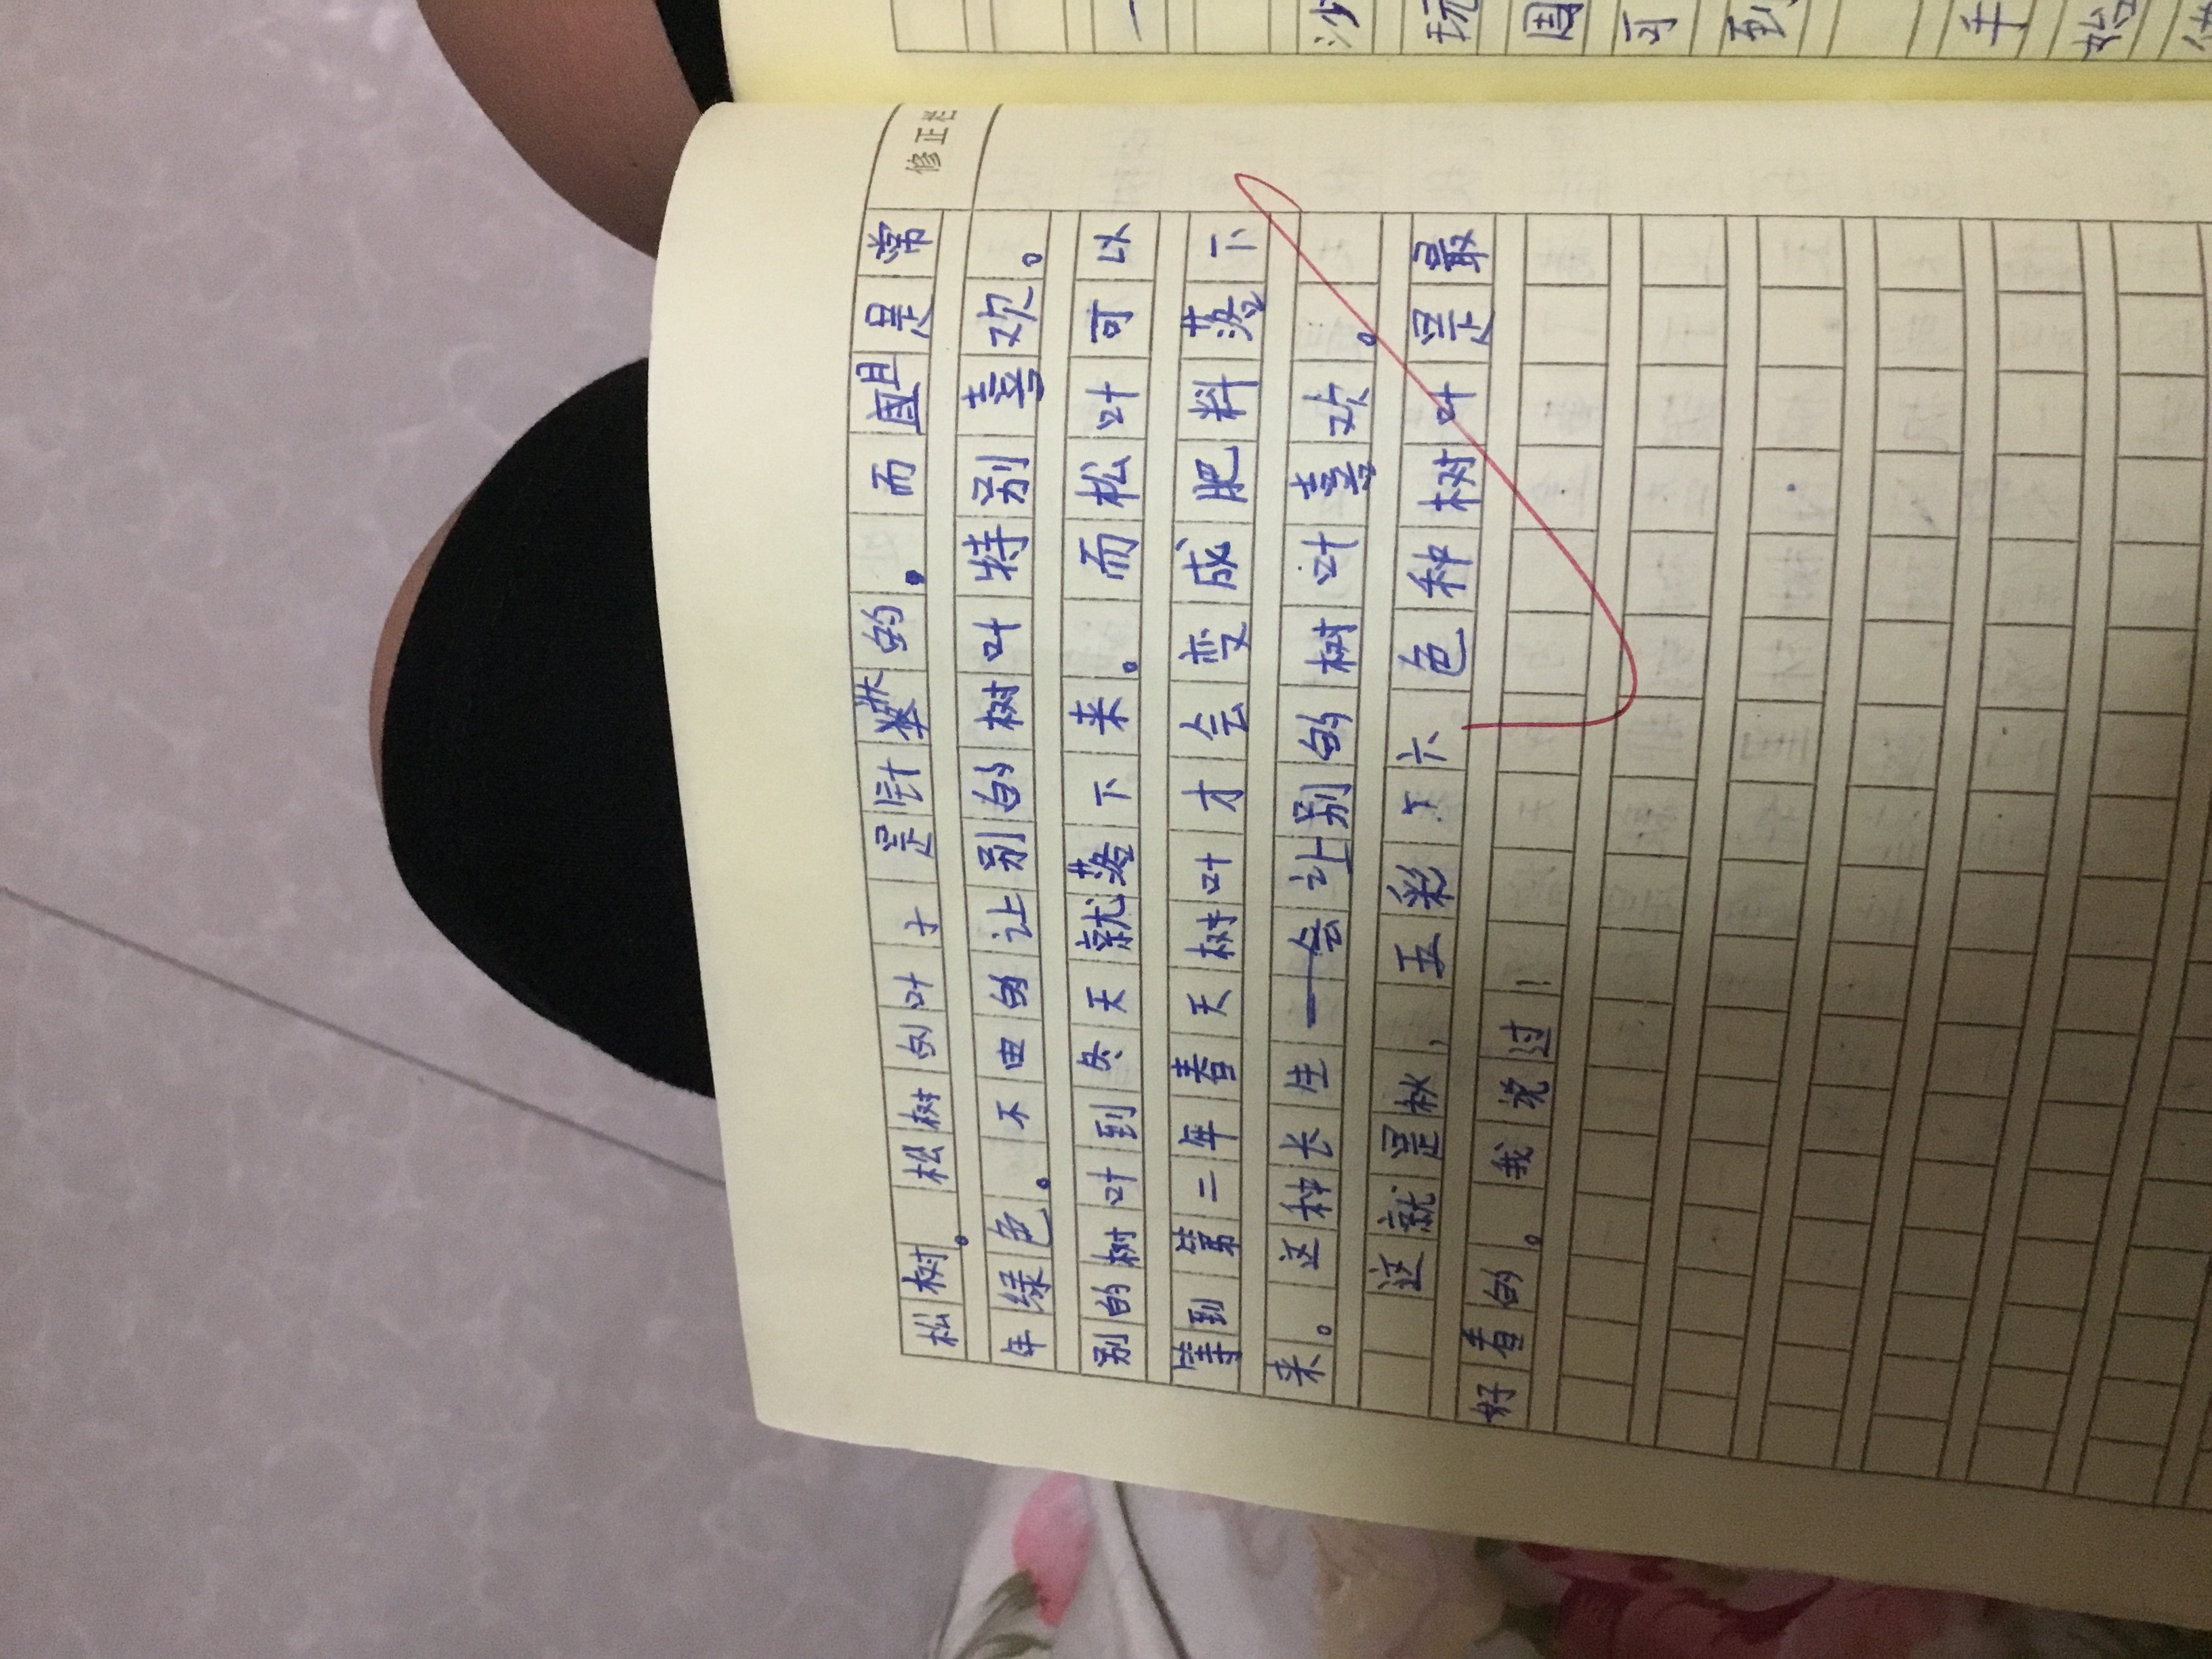 修正栏
松树。松树的叶子是针类的。而且是常
年绿色。不由的让别的树叶特别喜欢。
别的树叶到失天就落下来。而松叶可以
等到第二年春天树叶才会变成肥料落下
来。这种长生一会让别的树叶喜欢。
这就是秋,五彩六色种树叶是最
好看的。我说过!
一
沙
玩
周
可
到
手